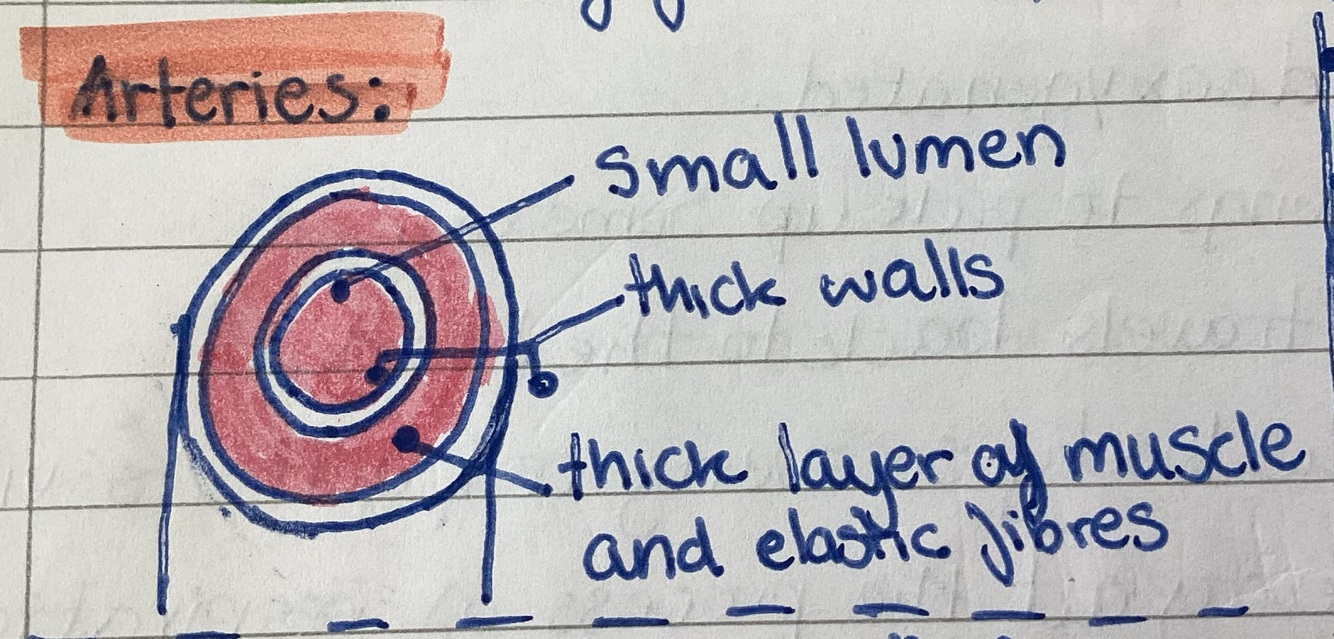 Arteries:
small lumen
thick walls
thick layer of muscle
and elastic fibres